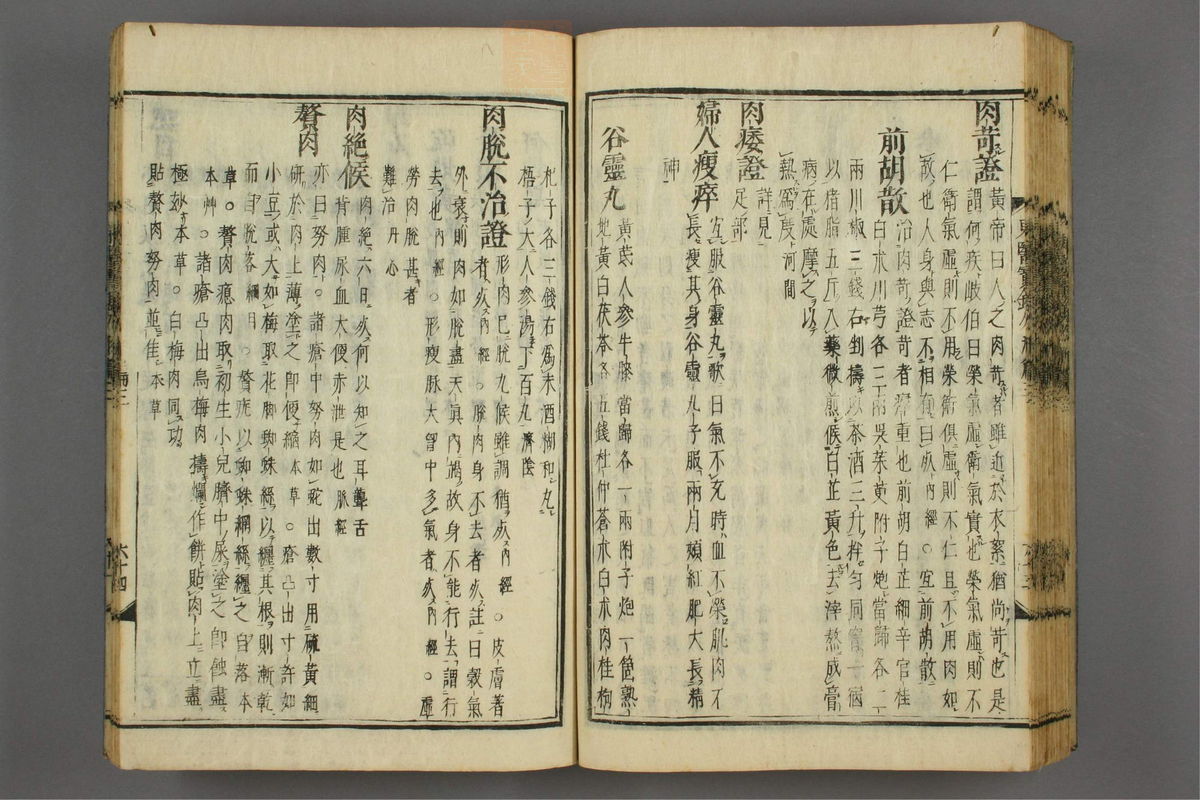 肉苛證 黃帝曰人之肉苛者雖近於衣絮猶尚苛也是
謂何疾歧伯曰榮氣虛衛氣實也榮氣虛則不
仁衛氣虛則不用榮衛俱虛則不仁且不用肉如
故也人身與志不相有曰死內經○宜前胡散
前胡散 治肉苛證苛者㿏重也前胡白芷細辛官桂
白朮川芎各三兩吳茱萸附子炮當歸各二
兩川椒三錢右剉擣以茶酒三升拌匀同窨一宿
以猪脂五斤入藥微煎候白芷黃色去滓熬成膏
病在處摩之以
熱爲度河間
肉痿證 詳見
足部
婦人瘦瘁 宜服谷靈丸歌曰氣不充時血不榮肌肉不
長瘦其身谷靈丸子服兩月頰紅肥大長精
神
谷靈丸 黃芪人參牛膝當歸各一兩附子炮一箇熟
地黃白茯苓各五錢杜仲蒼朮白朮肉桂枸
杞子各三錢右爲末酒糊和丸
梧子大人參湯下百丸濟陰
肉脫不治證 形肉已脫九候雖調猶死內經○皮膚著
者死內經○脫肉身不去者死註曰穀氣
外衰則肉如脫盡天眞內竭故身不能行去謂行
去也內經○形瘦脉大胷中多氣者死內經○虛
勞肉脫甚者
難治丹心
肉絶候 肉絶六日死何以知之耳聾舌
背腫尿血大便赤泄是也脉經
贅肉 亦曰努肉○諸瘡中努肉如蛇出數寸用硫黃細
研於肉上薄塗之卽便縮本草○瘡凸出寸許如
小豆或大如梅取花脚蜘蛛絲以纒其根則漸乾
而自脫落綱目○贅疣以蜘蛛網絲纒之自落本
草○贅肉瘜肉取初生小兒臍中屎塗之卽蝕盡
本艸○諸瘡凸出烏梅肉擣爛作餠貼肉上立盡
極妙本草○白梅肉同功
貼贅肉努肉並佳本草
六十四